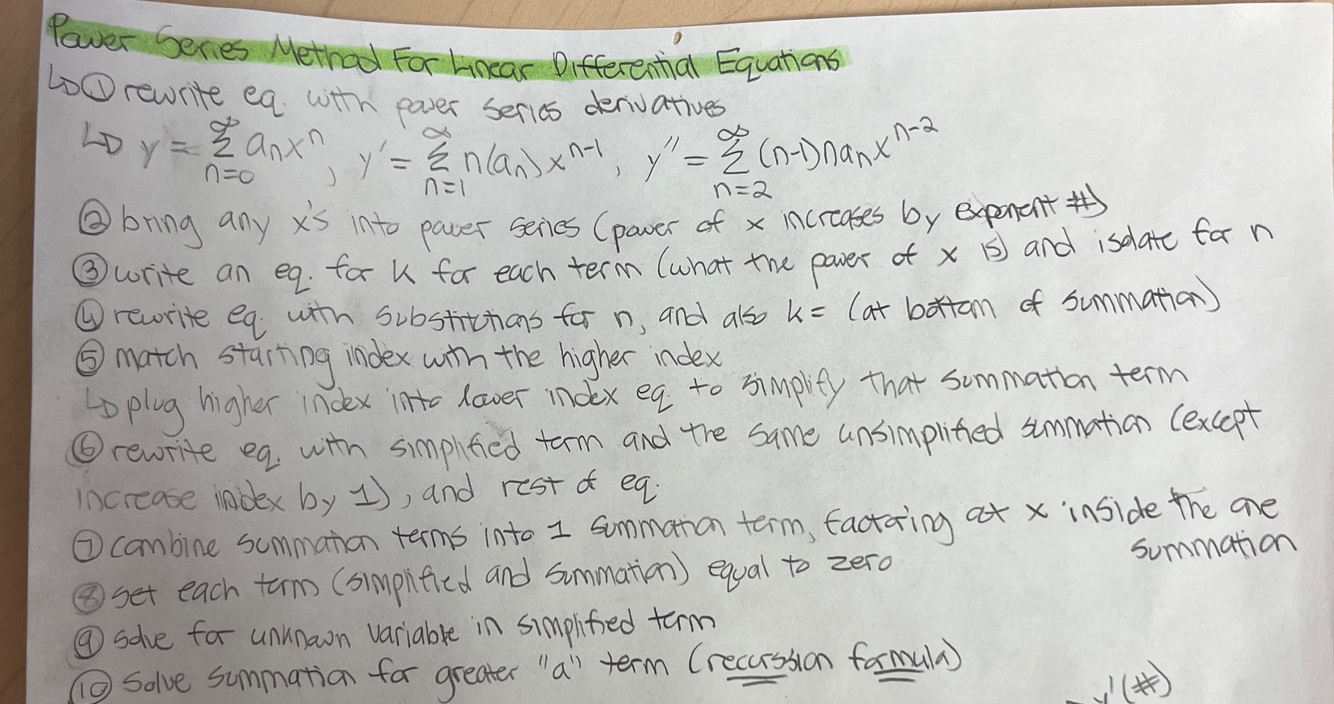 Power Series Method For Linear Differential Equations
↳① rewrite eq. with power series derivatives
↳ y = ∞ Σ n=0 aₙxⁿ, y' = ∞ Σ n=1 n(aₙ)xⁿ⁻¹, y'' = ∞ Σ n=2 (n-1)naₙxⁿ⁻²
② bring any x's into power series (power of x increases by exponent #)
③ write an eq. for k for each term (what the power of x is) and isolate for n
④ rewrite eq. with substitutions for n, and also k = (at bottom of summation)
⑤ match starting index with the higher index
↳ plug higher index into lower index eq. to simplify that summation term
⑥ rewrite eq. with simplified term and the same unsimplified summation (except
increase index by 1), and rest of eq.
⑦ combine summation terms into 1 summation term, factoring out x inside the one
summation
⑧ set each term (simplified and summation) equal to zero
⑨ solve for unknown variable in simplified term
⑩ solve summation for greater "a" term (recurssion formula)
y'(#)